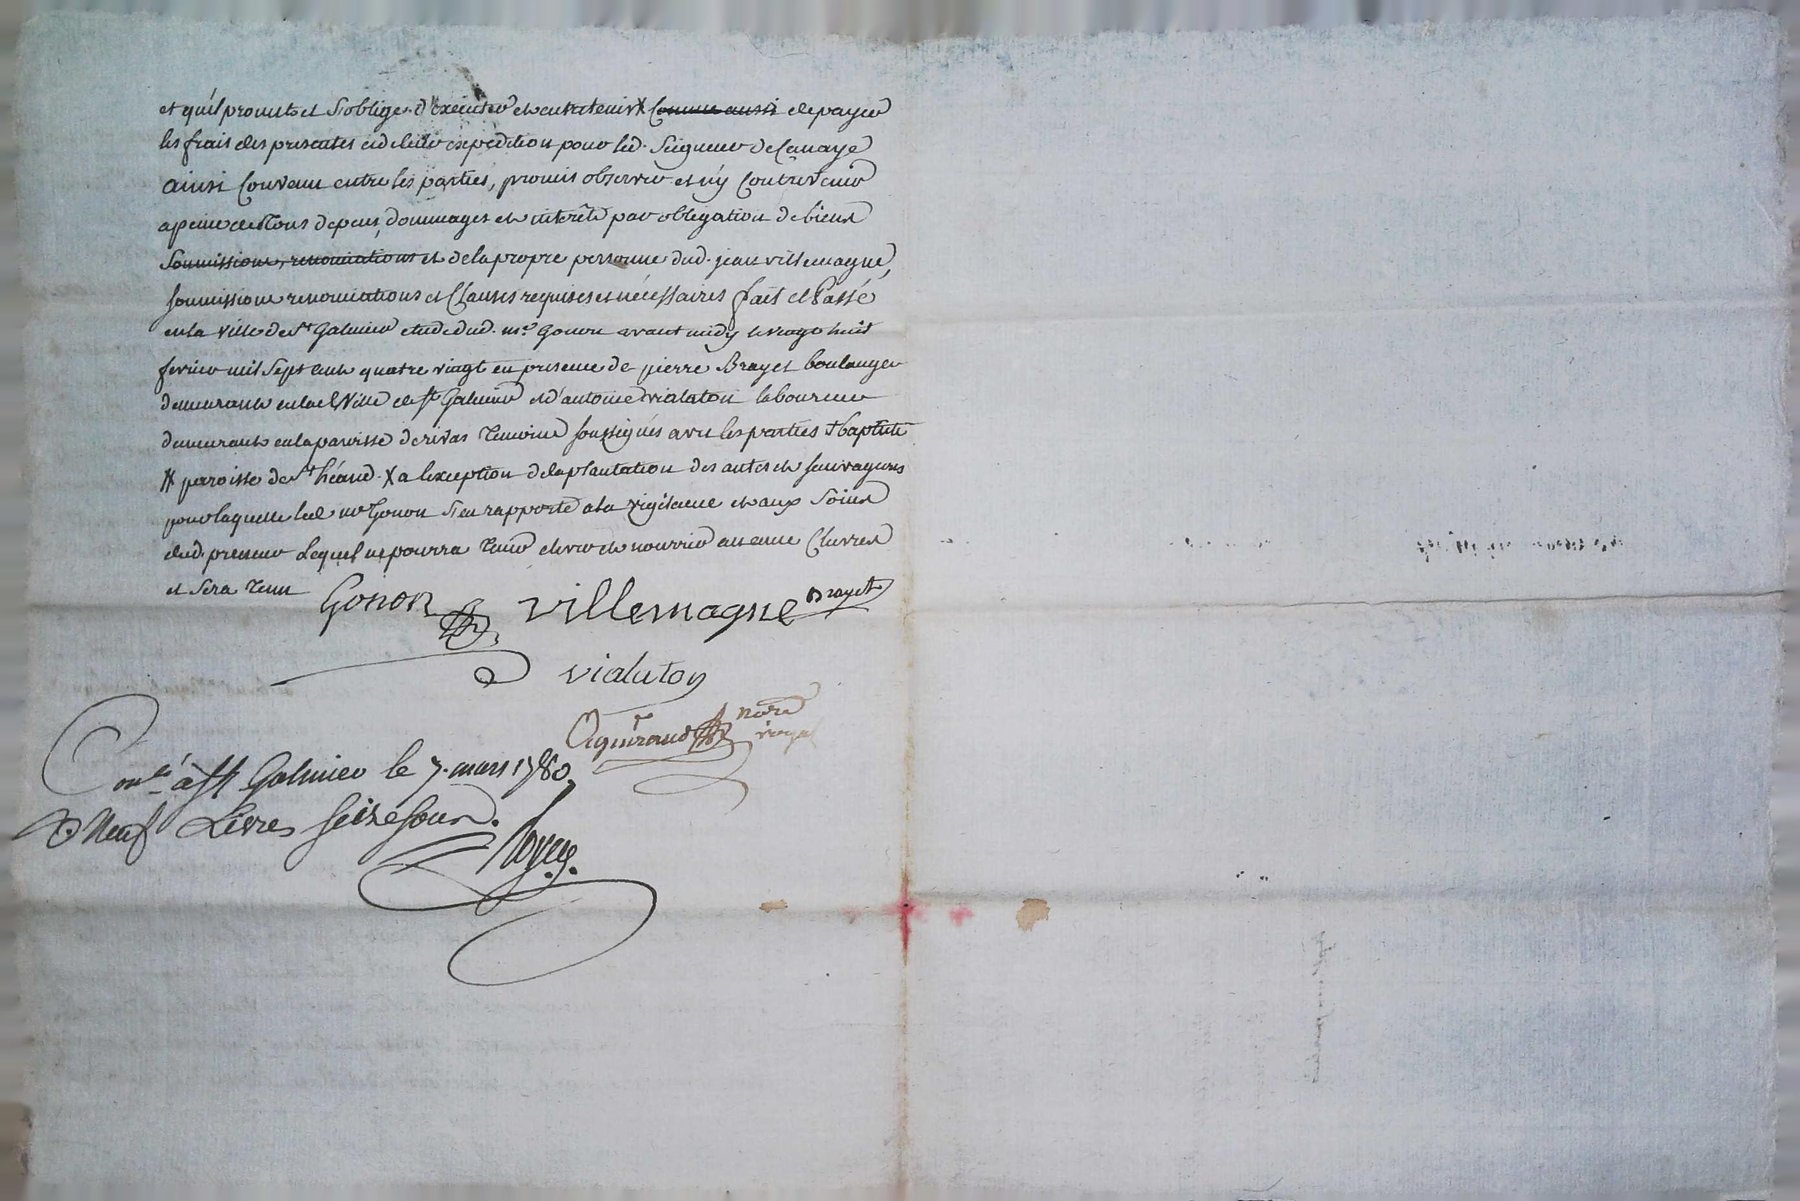 et qu'il promet et s'oblige d'exécuter et entretenir X comme aussi de payer
les frais des presentes et d'autre expedition pour led. Seigneur de
ainsi Convenu entre les parties, promis observer et n'y Contrevenir
a peine de tous depens, dommages et interêts par obligation de biens
soumissions, renonciations et de la propre personne dud. jean villemagne,
soumissions renonciations et Clauses requises et nécessaires fait et Passé
en la ville de St Galmier etude dud. me. Gonon avant midy le vingt huit
fevrier mil sept cent quatre vingt en presence de pierre Brayet boulanger
demeurant en lad. Ville de St Galmier et d'antoine vialaton laboureur
demeurant en la paroisse de rivas temoins soussignés avec les parties + baptiste
# paroisse de St héand. X a l'exception de la plantation des antes et sauvageons
pour laquelle led. me Gonon s'en rapporte a la vigilance et aux Soins
dud. preneur Lequel ne pourra tenir elever et nourrir aucune Chevres
et sera tenu
Gonon villemagne Brayet
vialaton
nore
royal
Conlé à St Galmier le 7. mars 1780
D Neuf Livres seize sous.